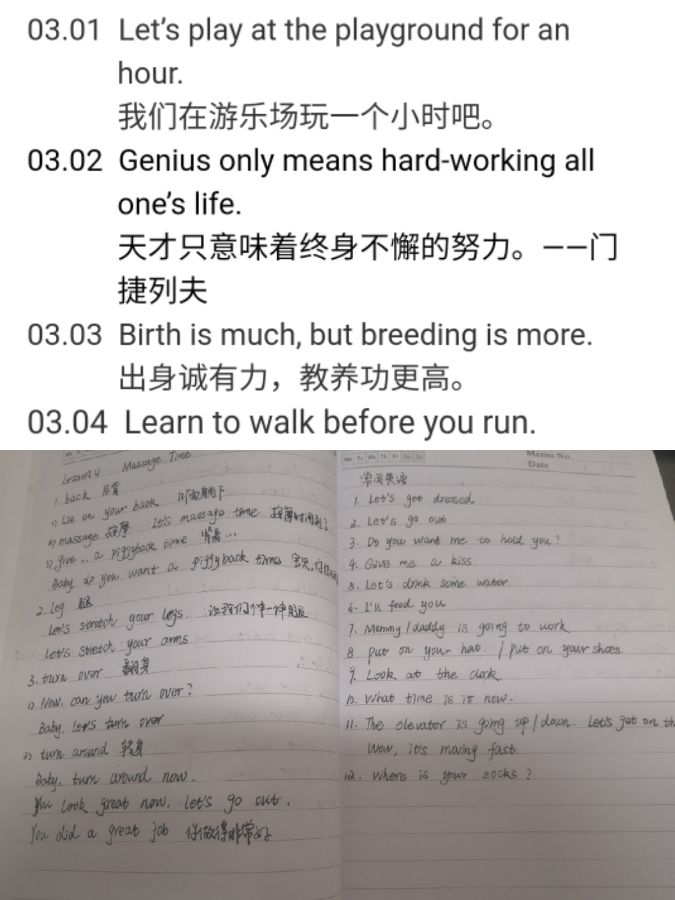 03.01 Let's play at the playground for an
hour.
我们在游乐场玩一个小时吧。
03.02 Genius only means hard-working all
one's life.
天才只意味着终身不懈的努力。——门
捷列夫
03.03 Birth is much, but breeding is more.
出身诚有力，教养功更高。
03.04 Learn to walk before you run.
Lesson 4 Massage Time
1. back 后背
1) Lie on your back
2) massage 按摩 It's massage time 按摩时间到了
3) give ... a piggyback time 背着...
Baby do you want a piggyback time 宝贝,
2. leg 腿
Let's stretch your legs.
Let's stretch your arms
3. turn over 翻身
1) Now, can you turn over?
Baby let's turn over
2) turn around 转身
Baby, turn around now.
You look great now, let's go out.
You did a great job 你做得非常好
Memo No.
Date
Mo Tu We Th Fr Sa Su
常用英语
1. Let's get dressed
2. Let's go out
3. Do you want me to hold you?
4. Give me a kiss.
5. Let's drink some water
6. I'll feed you
7. Mommy / daddy is going to work
8 put on your hat. / put on your shoes.
9. Look at the clock
10. What time is it now.
11. The elevator is going up / down. Let's get on th
Wow, it's moving fast.
12. Where is your socks?